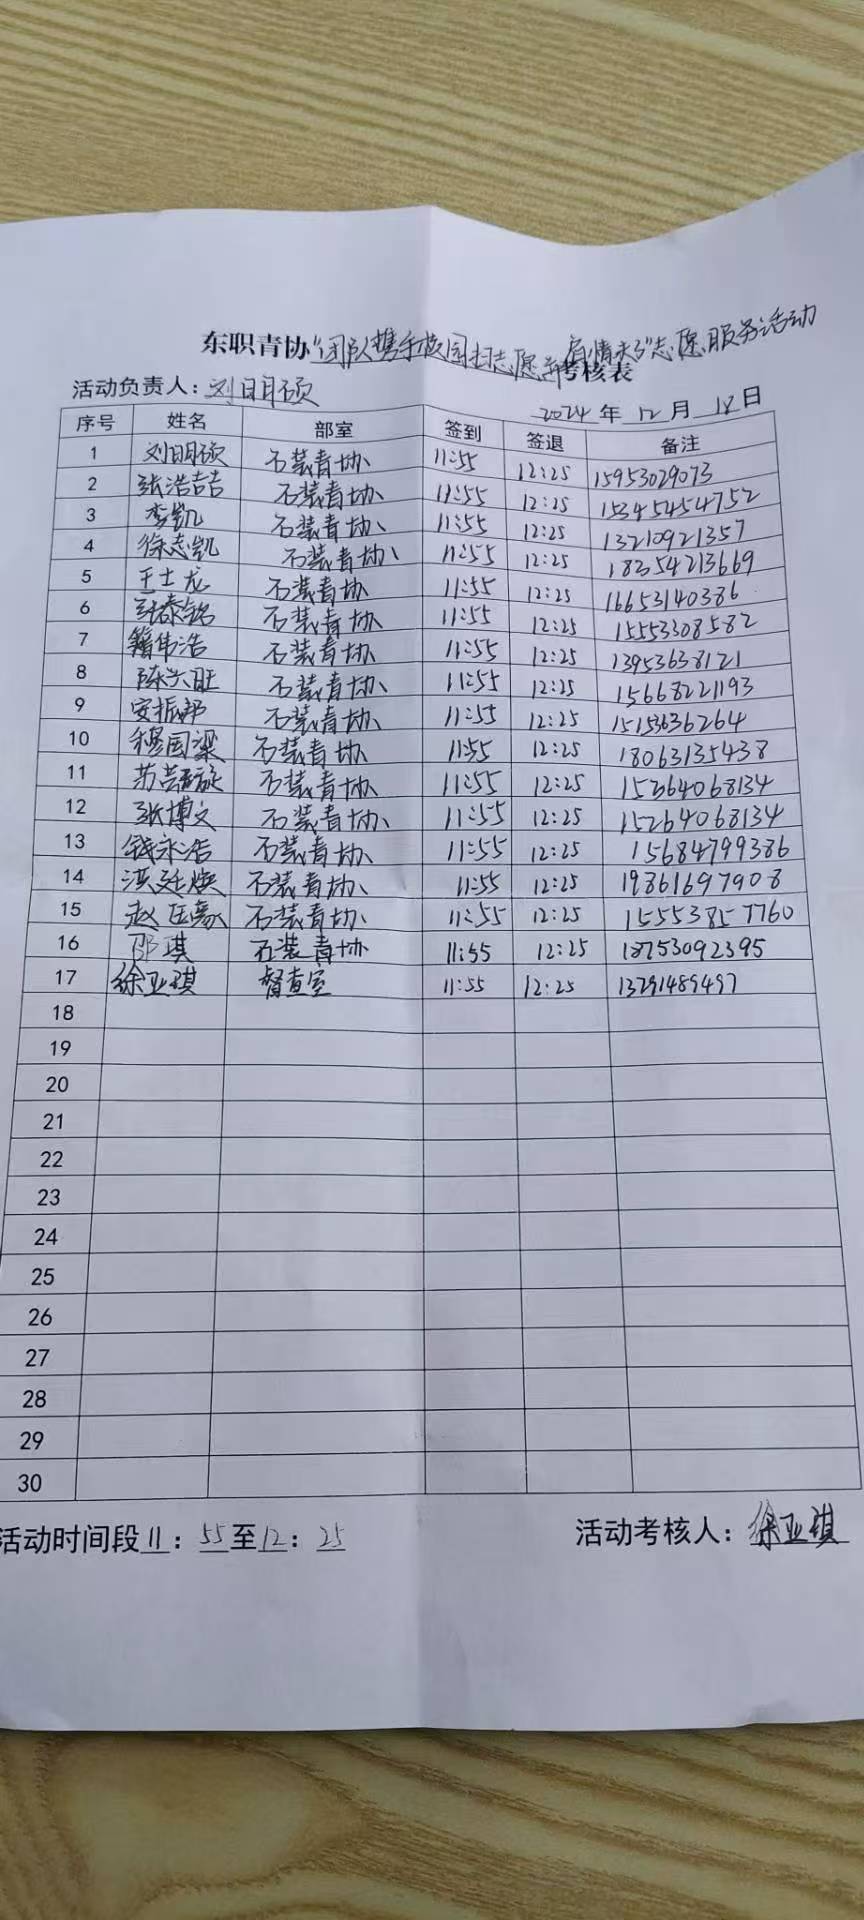 东职青协“团队携手校园扫志愿 有情大了”志愿服务活动
考核表
活动负责人：刘明硕
2024 年 12 月 18 日
序号 姓名 部室 签到 签退 备注
1 刘明硕 石装青协 11:55 12:25 15953029073
2 张浩喆 石装青协 11:55 12:25 15345454752
3 李凯 石装青协 11:55 12:25 13210921357
4 徐志凯 石装青协 11:55 12:25 18354213669
5 王士龙 石装青协 11:55 12:25 16653140386
6 泰铭 石装青协 11:55 12:25 15553308582
7 籍伟浩 石装青协 11:55 12:25 13953638121
8 陈兴旺 石装青协 11:55 12:25 15668221193
9 安振邦 石装青协 11:55 12:25 15153636264
10 穆国梁 石装青协 11:55 12:25 18063135438
11 苏 旋 石装青协 11:55 12:25 15264068134
12 张博文 石装青协 11:55 12:25 15264068134
13 钱永浩 石装青协 11:55 12:25 15684799386
14 洪廷焕 石装青协 11:55 12:25 19861697908
15 赵匡豪 石装青协 11:55 12:25 15553857760
16 邵琪 石装青协 11:55 12:25 18753092395
17 徐亚琪 督查室 11:55 12:25 13291489497
18
19
20
21
22
23
24
25
26
27
28
29
30
活动时间段 11：55 至 12：25 活动考核人：徐亚琪